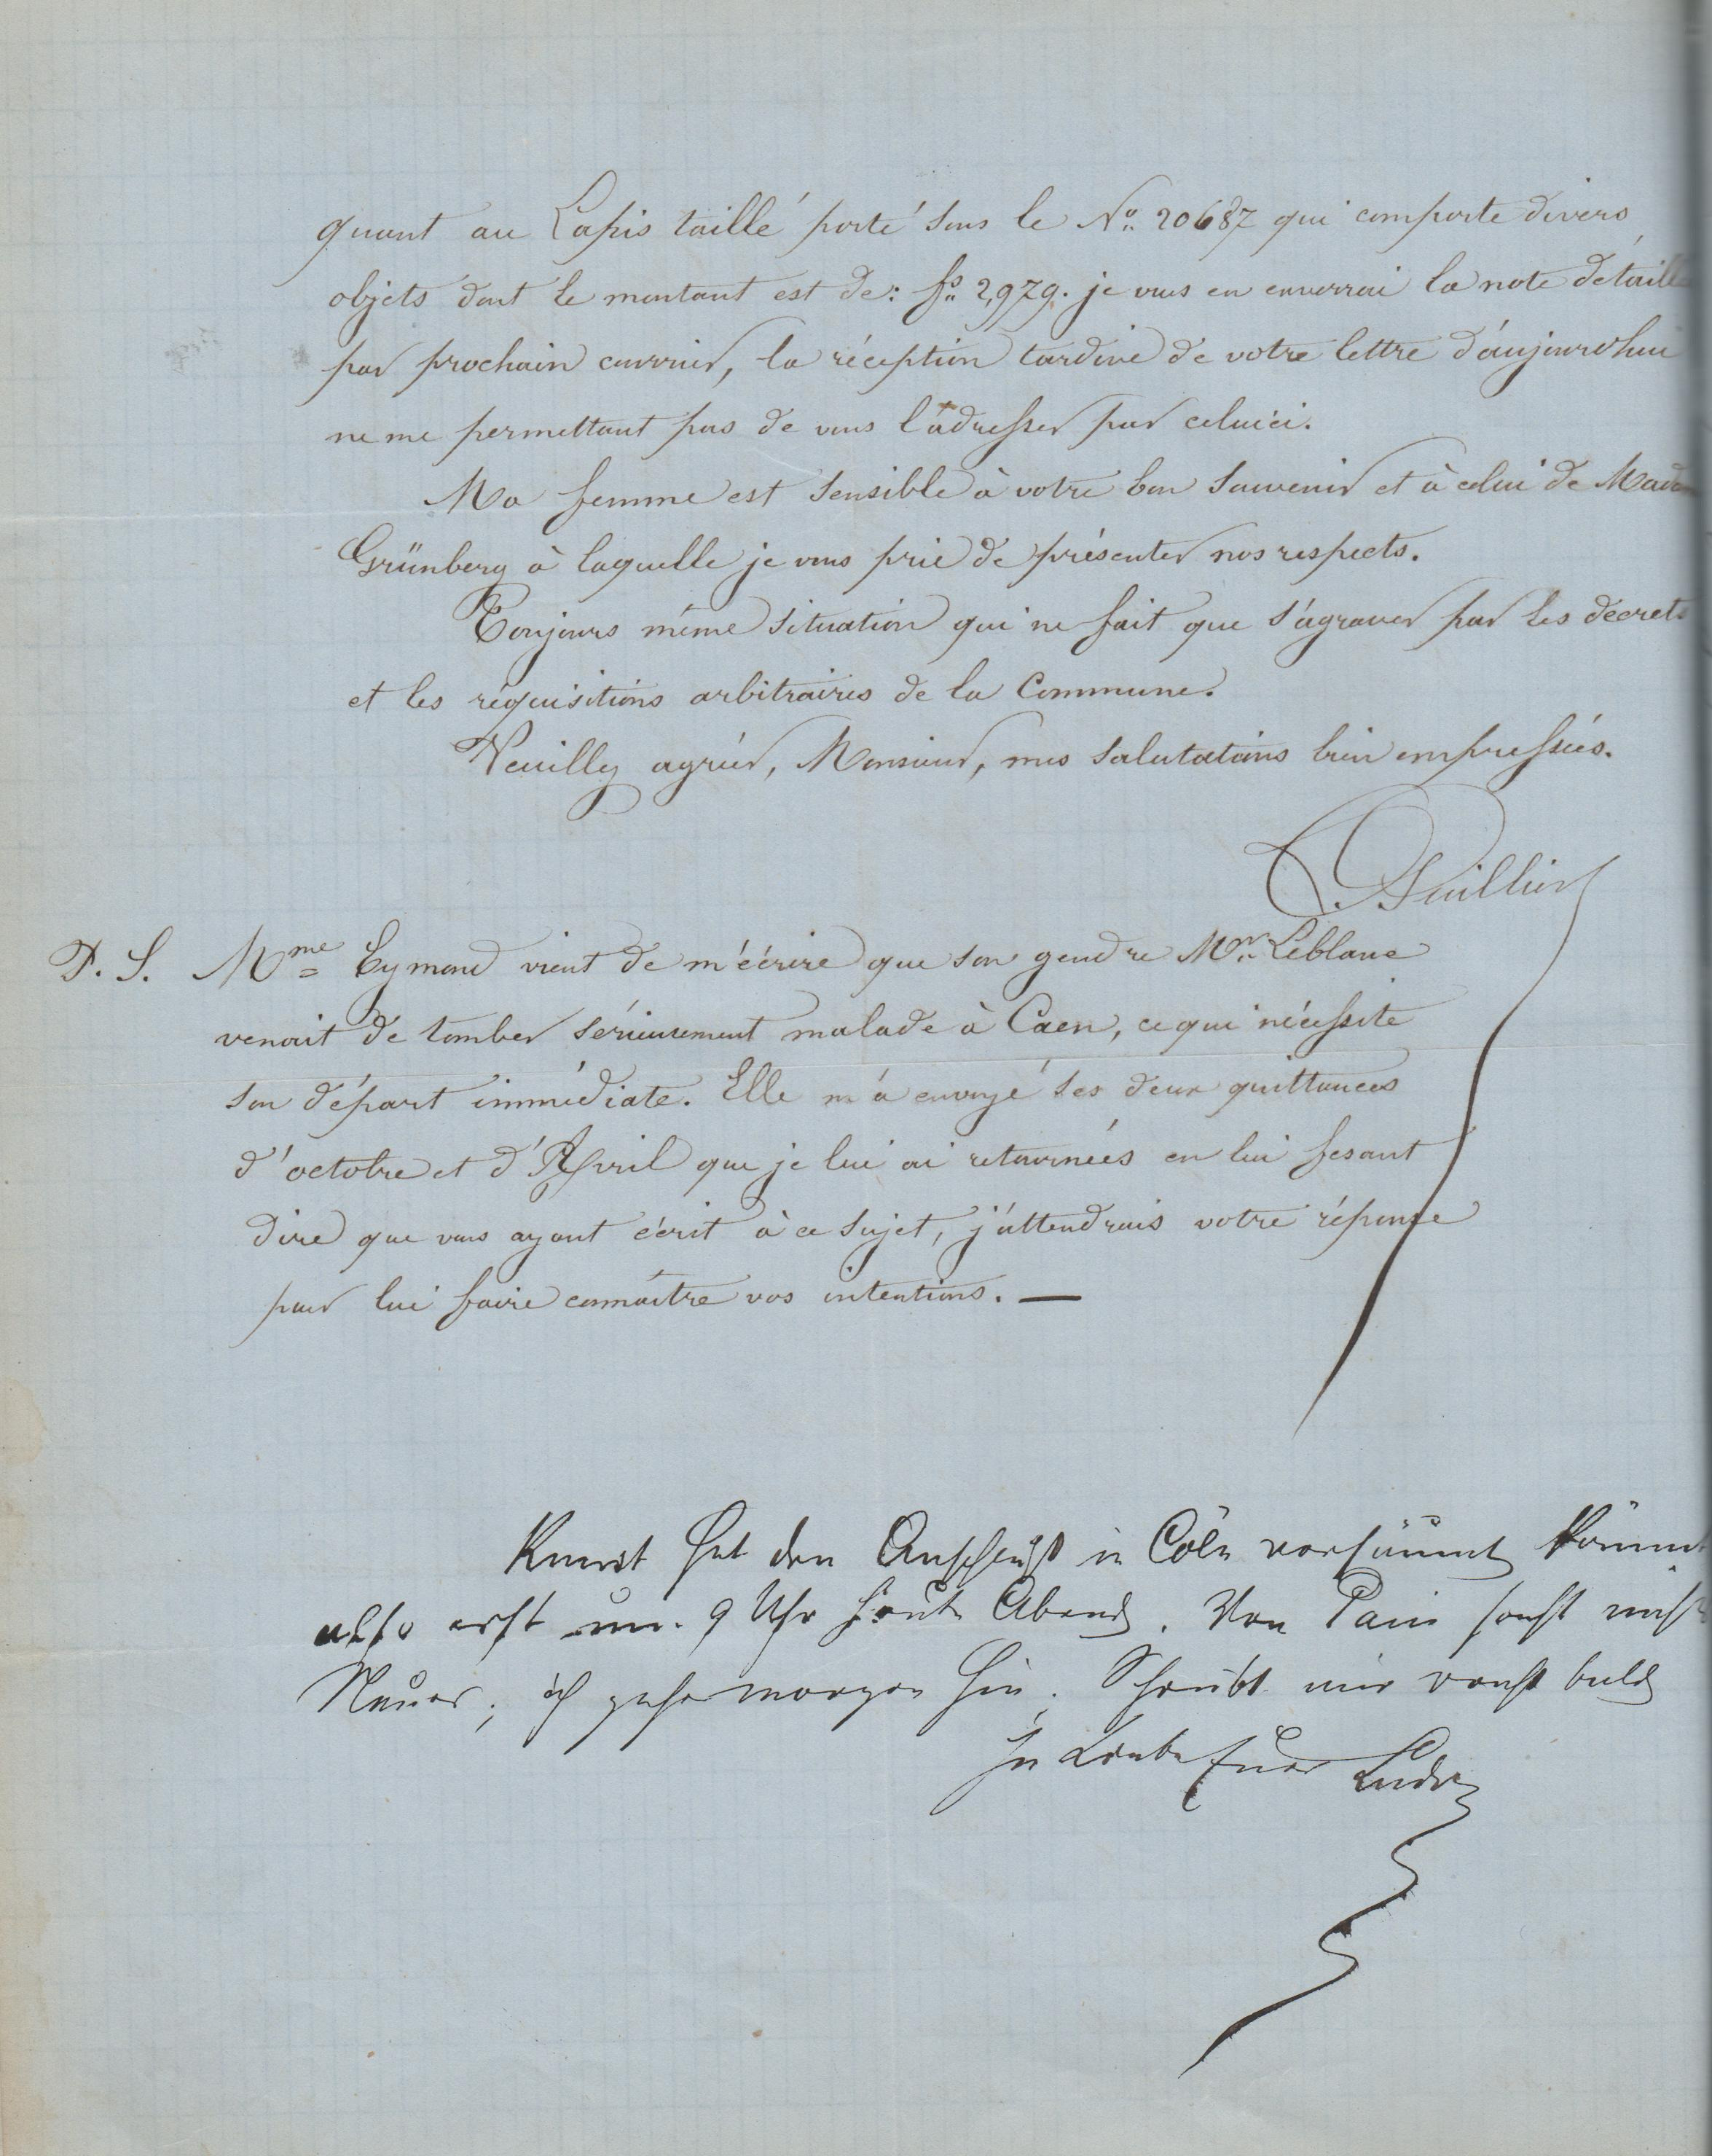 quant au Lapis taillé porté sous le No. 20687 qui comporte divers
objets dont le montant est de: fs. 2,979. je vous en enverrai la note détaillé
par prochain courrier, la réception tardive de votre lettre d'aujourd'hui
ne me permettant pas de vous l'adresser par celui ci.
Ma femme est sensible à votre bon souvenir et à celui de Mada
Grünberg à laquelle je vous prie de présenter nos respects.
Toujours même situation qui ne fait que s'agraver par les décrets
et les réquisitions arbitraires de la Commune.
Veuillez agréer, Monsieur, mes salutations bien empressées.
P. S. Mme Eymond vient de m'écrire que son gendre Mr. Leblanc
venait de tomber sérieusement malade à Caen, ce qui nécessite
son départ immédiate. Elle m'a envoyé ses deux quittances
d'octobre et d'Avril que je lui ai retournées en lui fesant
dire que vous ayant écrit à ce sujet, j'attendrais votre réponse
pour lui faire connaître vos intentions. —
hat den Anschluß in Cöln versäumt kömmt
also erst um 9 Uhr heute Abend. Von Paris sonst nichts
Neues; ich gehe morgen hin. Schreibt mir recht bald
In Liebe Euer